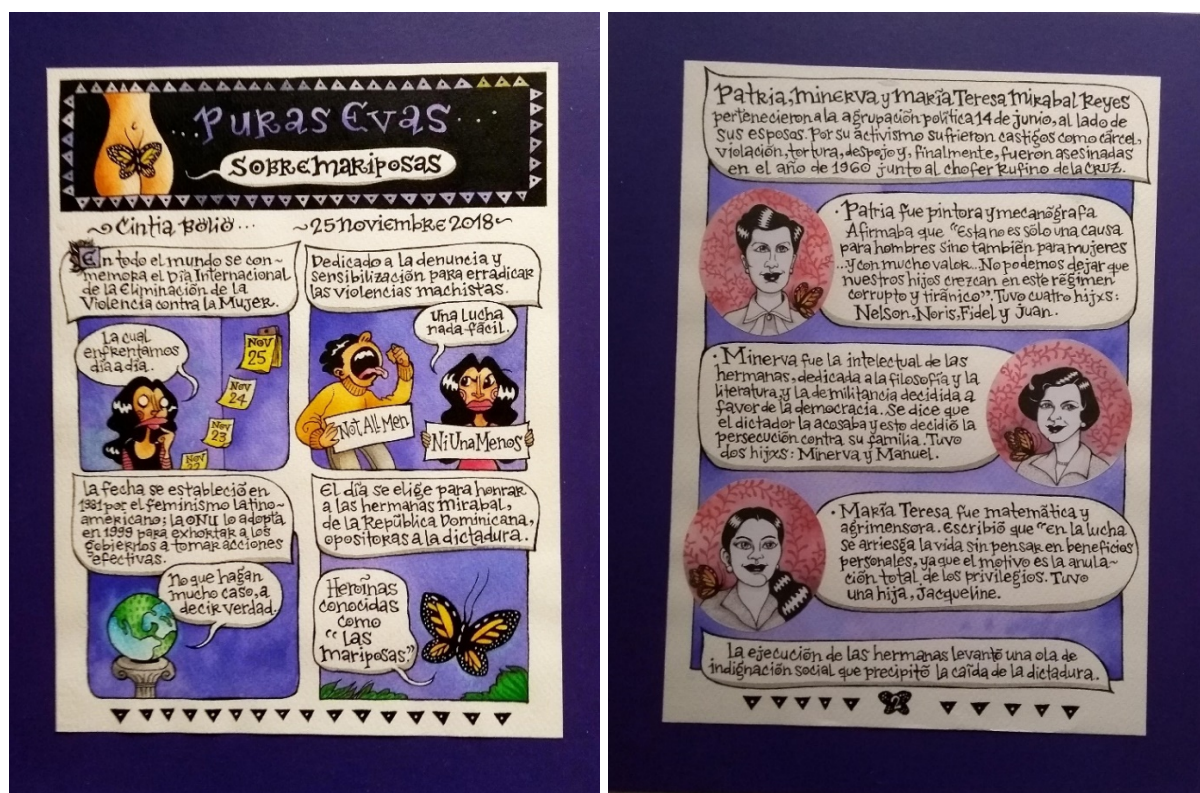 ...Puras Evas...
Sobre mariposas
Cintia Bolio...
25 noviembre 2018
En todo el mundo se con-
memora el Día Internacional
de la Eliminación de la
Violencia contra la Mujer.
Dedicado a la denuncia y
sensibilización para erradicar
las violencias machistas.
La cual
enfrentamos
día a día.
Nov
25
Nov
24
Nov
23
Nov
22
Una lucha
nada fácil.
Not All Men
Ni Una Menos
La fecha se estableció en
1981 por el feminismo latino-
americano; la ONU lo adopta
en 1999 para exhortar a los
gobiernos a tomar acciones
efectivas.
El día se elige para honrar
a las hermanas Mirabal,
de la República Dominicana,
opositoras a la dictadura.
No que hagan
mucho caso, a
decir verdad.
Heroínas
conocidas
como
"las
mariposas."
Patria, Minerva y María Teresa Mirabal Reyes
pertenecieron a la agrupación política 14 de junio, al lado de
sus esposos. Por su activismo sufrieron castigos como cárcel,
violación, tortura, despojo y, finalmente, fueron asesinadas
en el año de 1960 junto al chofer Rufino de la Cruz.
· Patria fue pintora y mecanógrafa
Afirmaba que "Esta no es sólo una causa
para hombres sino también para mujeres
...y con mucho valor... No podemos dejar que
nuestros hijos crezcan en este régimen
corrupto y tiránico". Tuvo cuatro hijxs:
Nelson, Noris, Fidel y Juan.
· Minerva fue la intelectual de las
hermanas, dedicada a la filosofía y la
literatura, y la de militancia decidida a
favor de la democracia. Se dice que
el dictador la acosaba y esto decidió la
persecución contra su familia. Tuvo
dos hijxs: Minerva y Manuel.
· María Teresa fue matemática y
agrimensora. Escribió que "en la lucha
se arriesga la vida sin pensar en beneficios
personales, ya que el motivo es la anula-
ción total de los privilegios. Tuvo
una hija, Jacqueline.
La ejecución de las hermanas levantó una ola de
indignación social que precipitó la caída de la dictadura.
2